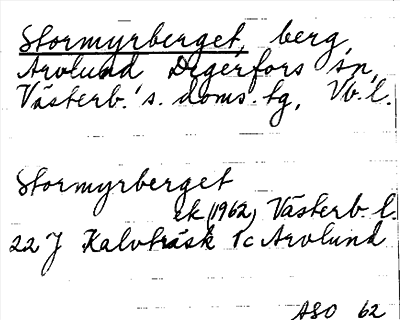 Stormyrberget, berg,
Arvlund Degerfors sn,
Västerb:s. doms. tg, Vb. l.
Stormyrberget
ek (1962) Västerb. l.
22 J Kalvträsk 1c Arvlund
ASO 62